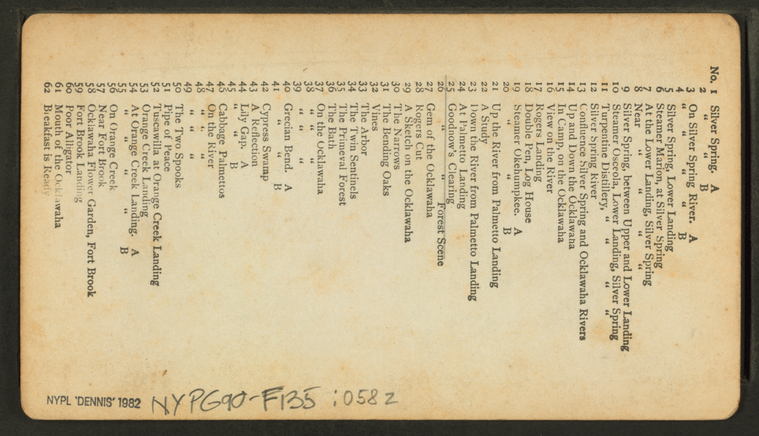 No. 1 Silver Spring. A
2 " " B
3 On Silver Spring River. A
4 " " " B
5 Silver Spring, Lower Landing
6 Steamer Marion, at Silver Spring
7 At the Lower Landing, Silver Spring
8 Near " " " "
9 Silver Spring, between Upper and Lower Landing
10 Steamer Osceola, Lower Landing, Silver Spring
11 Turpentine Distillery, " " " "
12 Silver Spring River
13 Confluence Silver Spring and Ocklawaha Rivers
14 Up and Down the Ocklawaha
15 In Camp, on the Ocklawaha
16 View on the River
17 Rogers Landing
18 Double Pen, Log House
19 Steamer Okehumpkee. A
20 " " B
21 Up the River from Palmetto Landing
22 A Study
23 Down the River from Palmetto Landing
24 At Palmetto Landing
25 Goodnow's Clearing
26 " " Forest Scene
27 Gem of the Ocklawaha
28 Rogers Cut
29 A Sketch on the Ocklawaha
30 The Narrows
31 The Bending Oaks
32 Vines
33 The Arbor
34 The Twin Sentinels
35 The Primeval Forest
36 The Bath
37 On the Ocklawaha
38 " " "
39 " " "
40 Grecian Bend. A
41 " " B
42 Cypress Swamp
43 A Reflection
44 Lily Gap. A
45 " " B
46 Cabbage Palmettos
47 On the River
48 " " "
49 " " "
50 The Two Spooks
51 Pipe of Peace
52 Tuscawilla at Orange Creek Landing
53 Orange Creek Landing
54 At Orange Creek Landing. A
55 " " " " B
56 On Orange Creek
57 Near Fort Brook
58 Ocklawaha Flower Garden, Fort Brook
59 Fort Brook Landing
60 Poor Alligator
61 Mouth of the Ocklawaha
62 Breakfast is Ready
NYPL 'DENNIS' 1982 NYPG90-F135 :0582